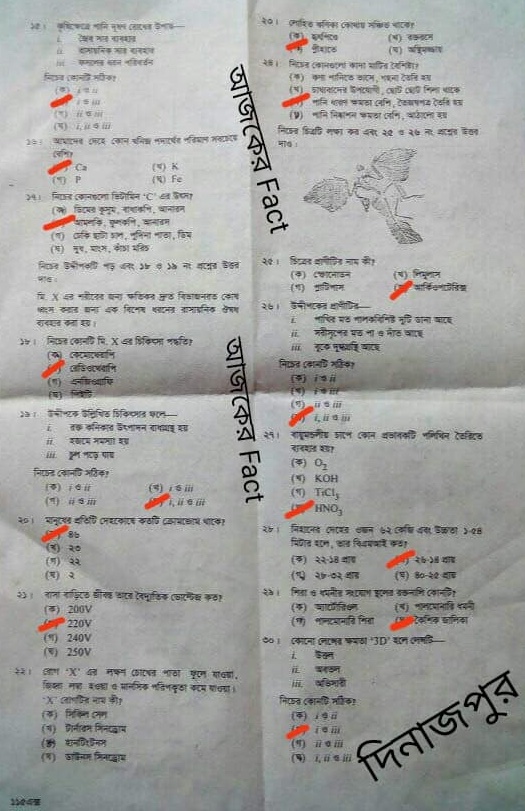 ১৫। কৃষিক্ষেত্রে পানি দূষণ রোধের উপায়—
i. জৈব সার ব্যবহার
ii. রাসায়নিক সার ব্যবহার
iii. ফসলের ধরন পরিবর্তন
নিচের কোনটি সঠিক?
(ক) i ও ii
i ও iii
(গ) ii ও iii
(ঘ) i, ii ও iii
১৬। আমাদের দেহে কোন খনিজ পদার্থের পরিমাণ সবচেয়ে
বেশি?
Ca (খ) K
(গ) P (ঘ) Fe
১৭। নিচের কোনগুলো ভিটামিন ‘C’ এর উৎস?
(ক) ডিমের কুসুম, বাঁধাকপি, আনারস
আমলকি, ফুলকপি, আনারস
(গ) ঢেঁকি ছাটা চাল, পুদিনা পাতা, ডিম
(ঘ) দুধ, মাংস, কাঁচা মরিচ
নিচের উদ্দীপকটি পড় এবং ১৮ ও ১৯ নং প্রশ্নের উত্তর
দাও :
মি. X এর শরীরের জন্য ক্ষতিকর দ্রুত বিভাজনরত কোষ
ধ্বংস করার জন্য এক বিশেষ ধরনের রাসায়নিক ঔষধ
ব্যবহার করা হয়।
১৮। নিচের কোনটি মি. X এর চিকিৎসা পদ্ধতি?
(ক) কেমোথেরাপি
রেডিওথেরাপি
(গ) এনজিওগ্রাফি
(ঘ) সিটি
১৯। উদ্দীপকে উল্লিখিত চিকিৎসার ফলে—
i. রক্ত কণিকার উৎপাদন বাধাগ্রস্থ হয়
ii. হজমে সমস্যা হয়
iii. চুল পড়ে যায়
নিচের কোনটি সঠিক?
(ক) i ও ii (খ) i ও iii
(গ) ii ও iii i, ii ও iii
২০। মানুষের প্রতিটি দেহকোষে কতটি ক্রোমোজোম থাকে?
৪৬
(খ) ২৩
(গ) ২২
(ঘ) ২
২১। বাসা বাড়িতে জীবন্ত তারে বৈদ্যুতিক ভোল্টেজ কত?
(ক) 200V
220V
(গ) 240V
(ঘ) 250V
২২। রোগ ‘X’ এর লক্ষণ চোখের পাতা ফুলে যাওয়া,
জিহ্বা লম্বা হওয়া ও মানসিক পরিপক্বতা কমে যাওয়া।
‘X’ রোগটির নাম কী?
(ক) সিকিল সেল
(খ) টার্নারস সিনড্রোম
হানটিংটনস
(ঘ) ডাউনস সিনড্রোম
১১৫এক্স
আজকের Fact
আজকের Fact
২৩। লোহিত কণিকা কোথায় সঞ্চিত থাকে?
(ক) হৃৎপিণ্ডে (খ) রক্তরসে
প্লীহাতে (ঘ) অস্থিমজ্জায়
২৪। নিচের কোনগুলো কাদা মাটির বৈশিষ্ট্য?
(ক) কণা পানিতে ভাসে, গহনা তৈরি হয়
(খ) চাষাবাদের উপযোগী, ছোট ছোট শিলা থাকে
পানি ধারণ ক্ষমতা বেশি, তৈজসপত্র তৈরি হয়
(ঘ) পানি নিষ্কাশন ক্ষমতা বেশি, আঠালো হয়
নিচের চিত্রটি লক্ষ্য কর এবং ২৫ ও ২৬ নং প্রশ্নের উত্তর
দাও :
২৫। চিত্রের প্রাণীটির নাম কী?
(ক) স্ফোনোডন (খ) লিমুলাস
(গ) প্লাটিপাস আর্কিওপটেরিক্স
২৬। উদ্দীপকের প্রাণীটির—
i. পাখির মত পালকবিশিষ্ট দুটি ডানা আছে
ii. সরীসৃপের মত পা ও দাঁত আছে
iii. বুকে দুগ্ধগ্রন্থি আছে
নিচের কোনটি সঠিক?
(ক) i ও ii
(খ) i ও iii
(গ) ii ও iii
i, ii ও iii
২৭। বায়ুমণ্ডলীয় চাপে কোন প্রভাবকটি পলিথিন তৈরিতে
ব্যবহার হয়?
(ক) O₂
(খ) KOH
(গ) TiCl₃
HNO₃
২৮। নিহানের দেহের ওজন ৬২ কেজি এবং উচ্চতা ১·৫৪
মিটার হলে, তার বিএমআই কত?
(ক) ২২·১৪ প্রায় ২৬·১৪ প্রায়
(গ) ২৮·৩২ প্রায় (ঘ) ৪০·২৫ প্রায়
২৯। শিরা ও ধমনীর সংযোগ স্থলের রক্তনালি কোনটি?
(ক) আর্টেরিওল (খ) পালমোনারি ধমনী
(গ) পালমোনারি শিরা কৈশিক জালিকা
৩০। কোনো লেন্সের ক্ষমতা ‘3D’ হলে লেন্সটি—
i. উত্তল
ii. অবতল
iii. অভিসারী
নিচের কোনটি সঠিক?
(ক) i ও ii
i ও iii
(গ) ii ও iii
(ঘ) i, ii ও iii
দিনাজপুর